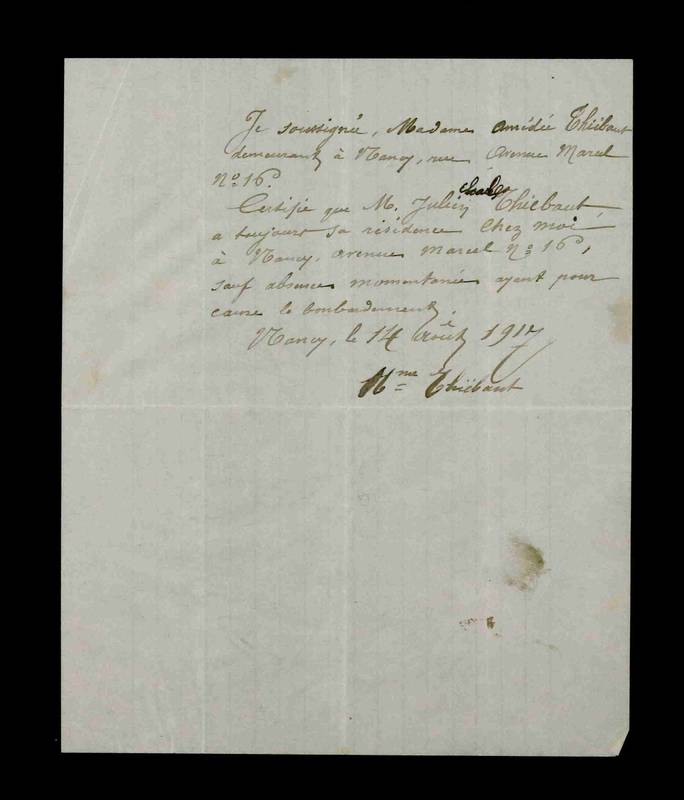 Je soussignée, Madame Amédée Thiébaut
demeurant à Nancy, rue Avenue Marcel
No 16.
Charles
Certifie que M. Julien Thiébaut
a toujours sa résidence chez moi
à Nancy, avenue Marcel No 16,
sauf absence momentanée ayant pour
cause le bombardement.
Nancy, le 14 Août 1917
Mme Thiébaut